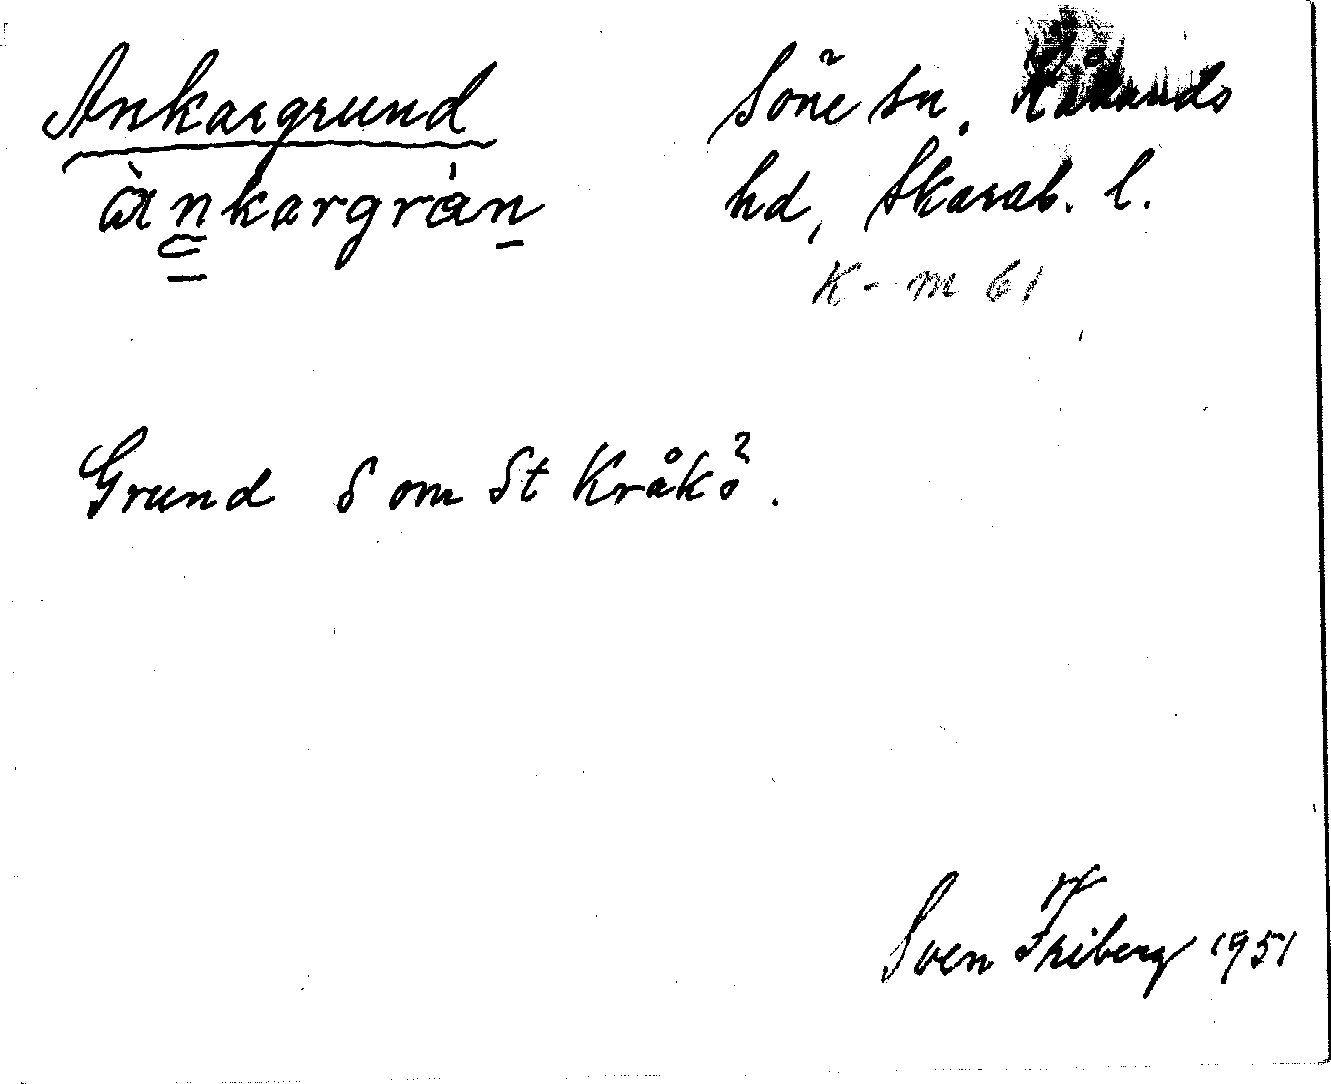 Ankargrund
Söne sn, Kållands
ànkargràn
hd, Skarab. l.
K-m 61
Grund S om St Kråkö.
Sven Friberg 1951